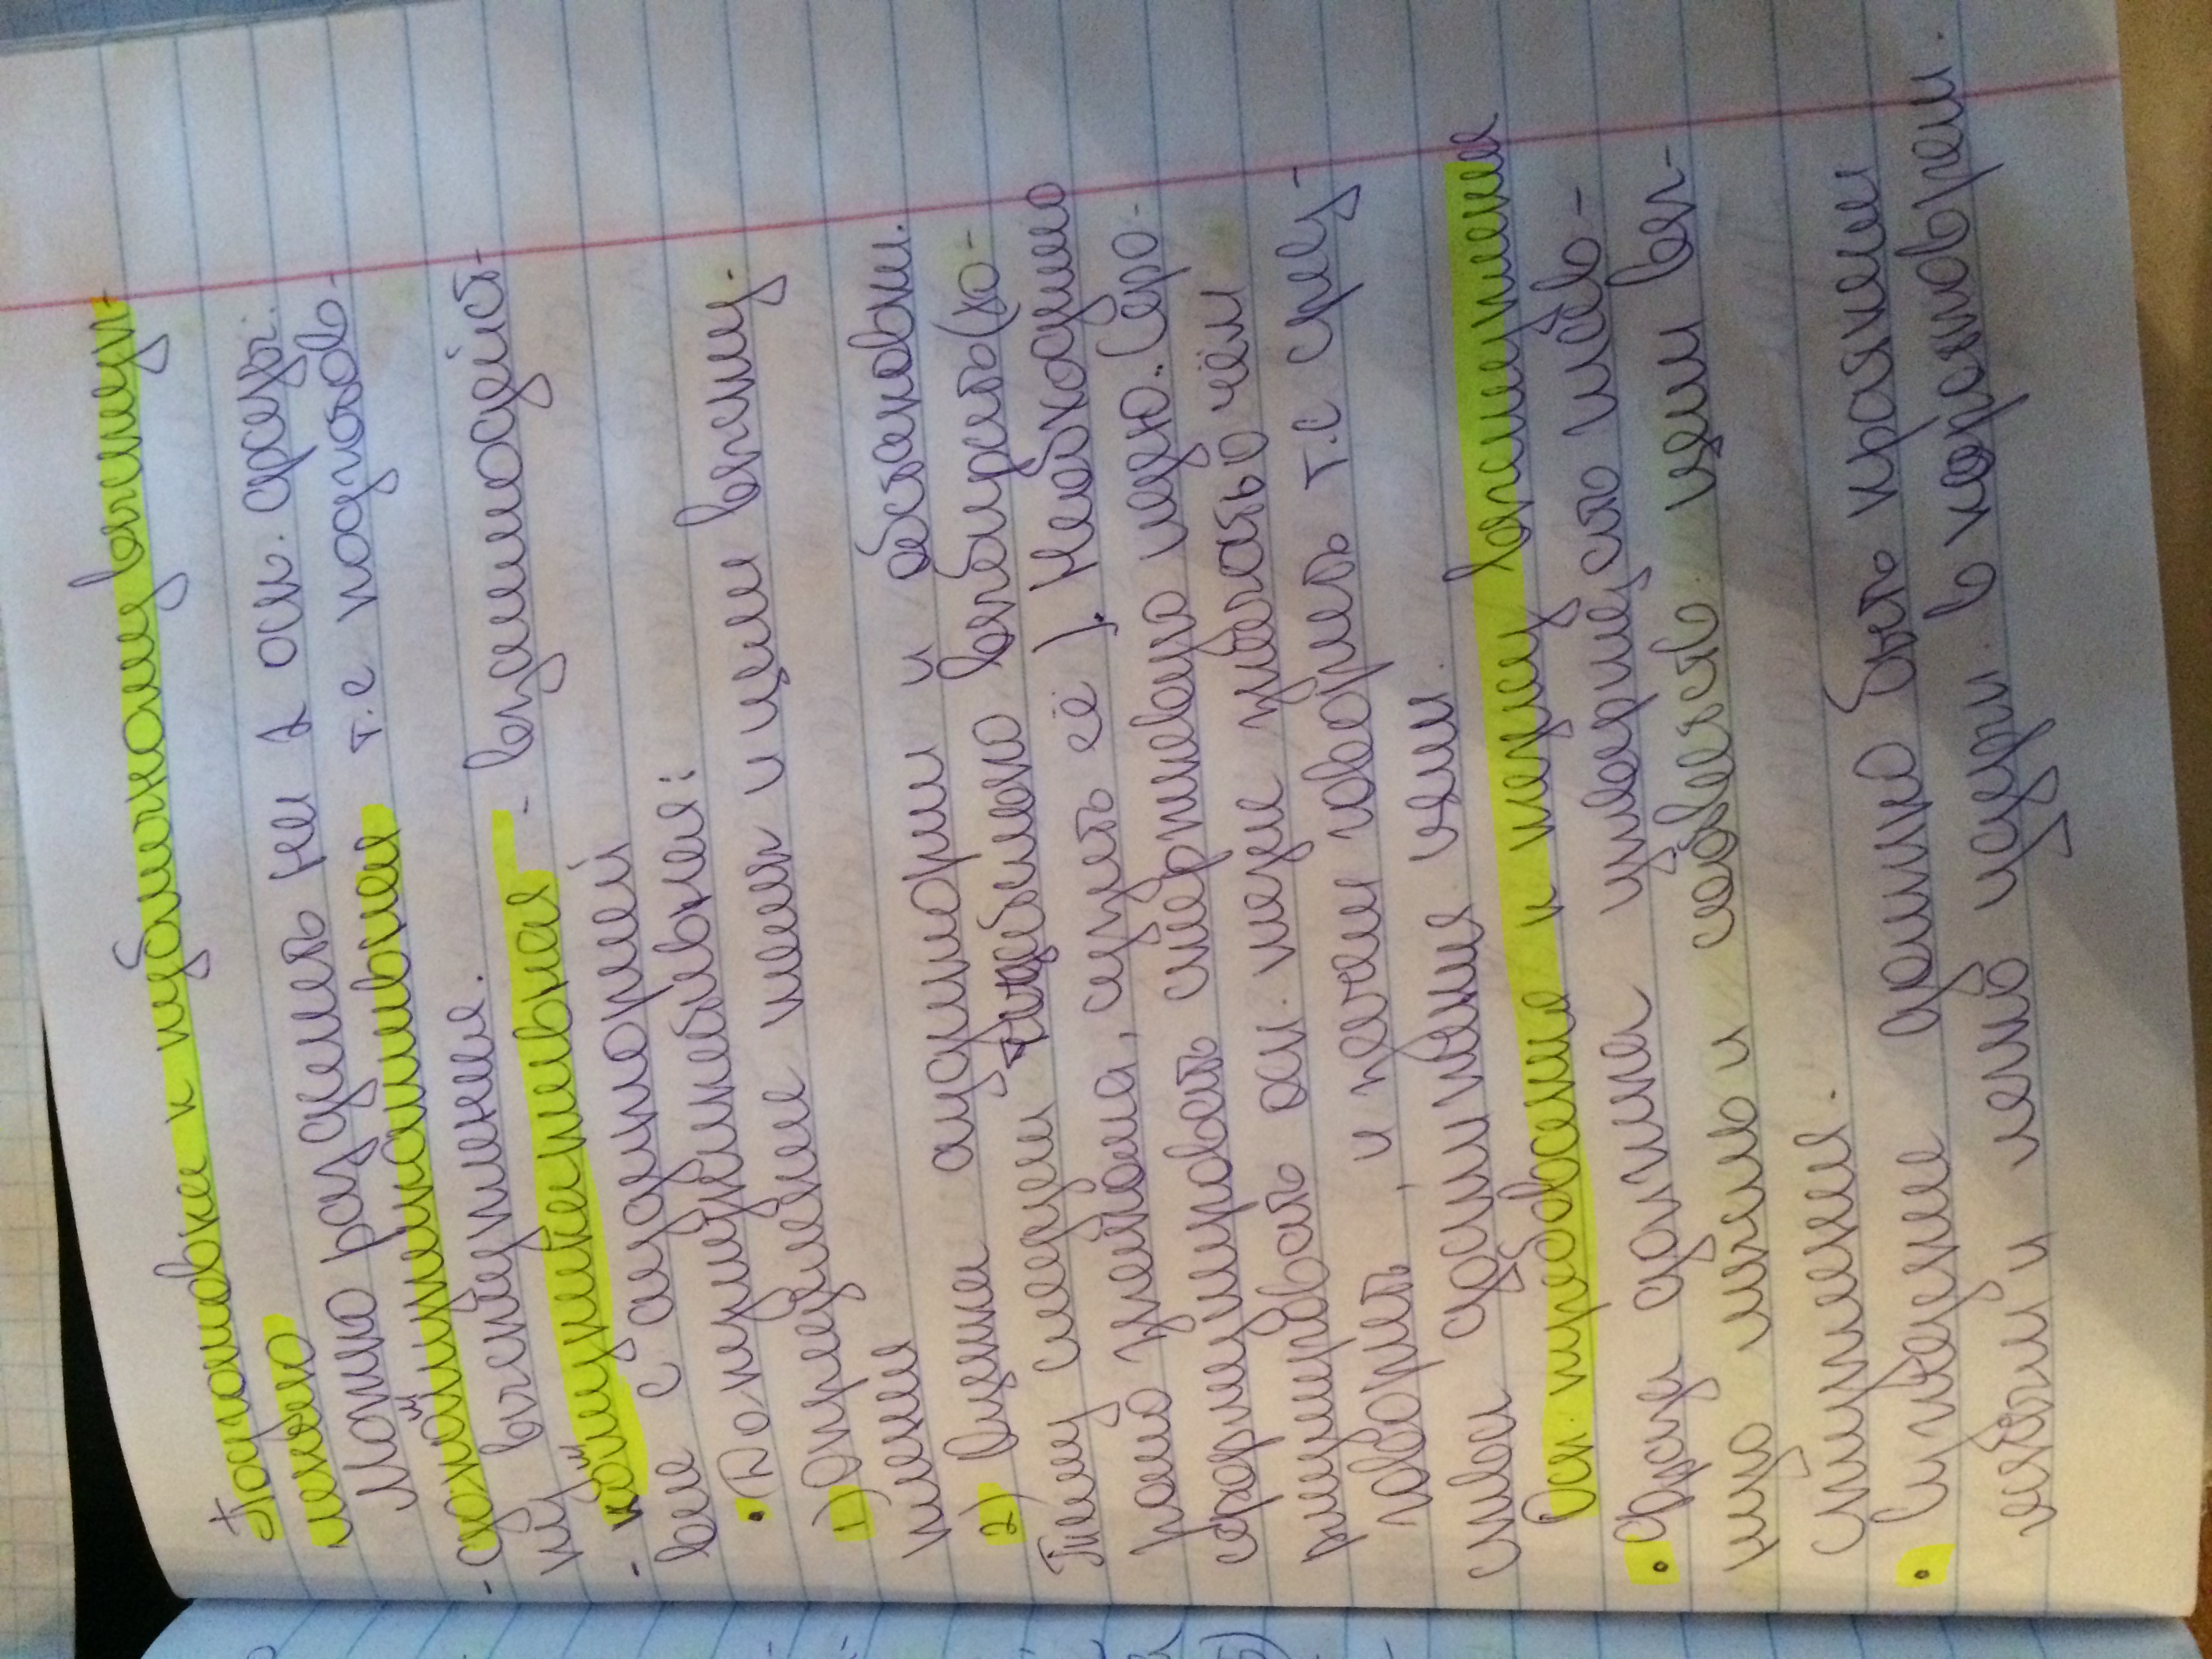 Подготовка к публичному выступ-
лению
Можно разделить на 2 осн. фазы:
- докоммуникативная т.е подготов-
ку выступления.
- коммуникативная - взаимодейст-
вие с аудиторией
• Докумуникативная:
1) Определение темы и цели высту-
пления
2) Оценка аудитории и обстановки.
Тему следует тщательно выбирать (хо-
рошо знакома, сузить её). Необходимо
сформулировать стержневую идею. Сфо-
рмулировать осн. тезис значать о чём
говорить, и зачем говорить т.е сред-
ства достижения цели.
Осн. требования к тезису выступления
• Фраза должна утверждать глав-
ную мысль и соответств. цели вы-
ступления.
• Суждение должно быть кратким
ясным и легко удерж. в кратковрем.